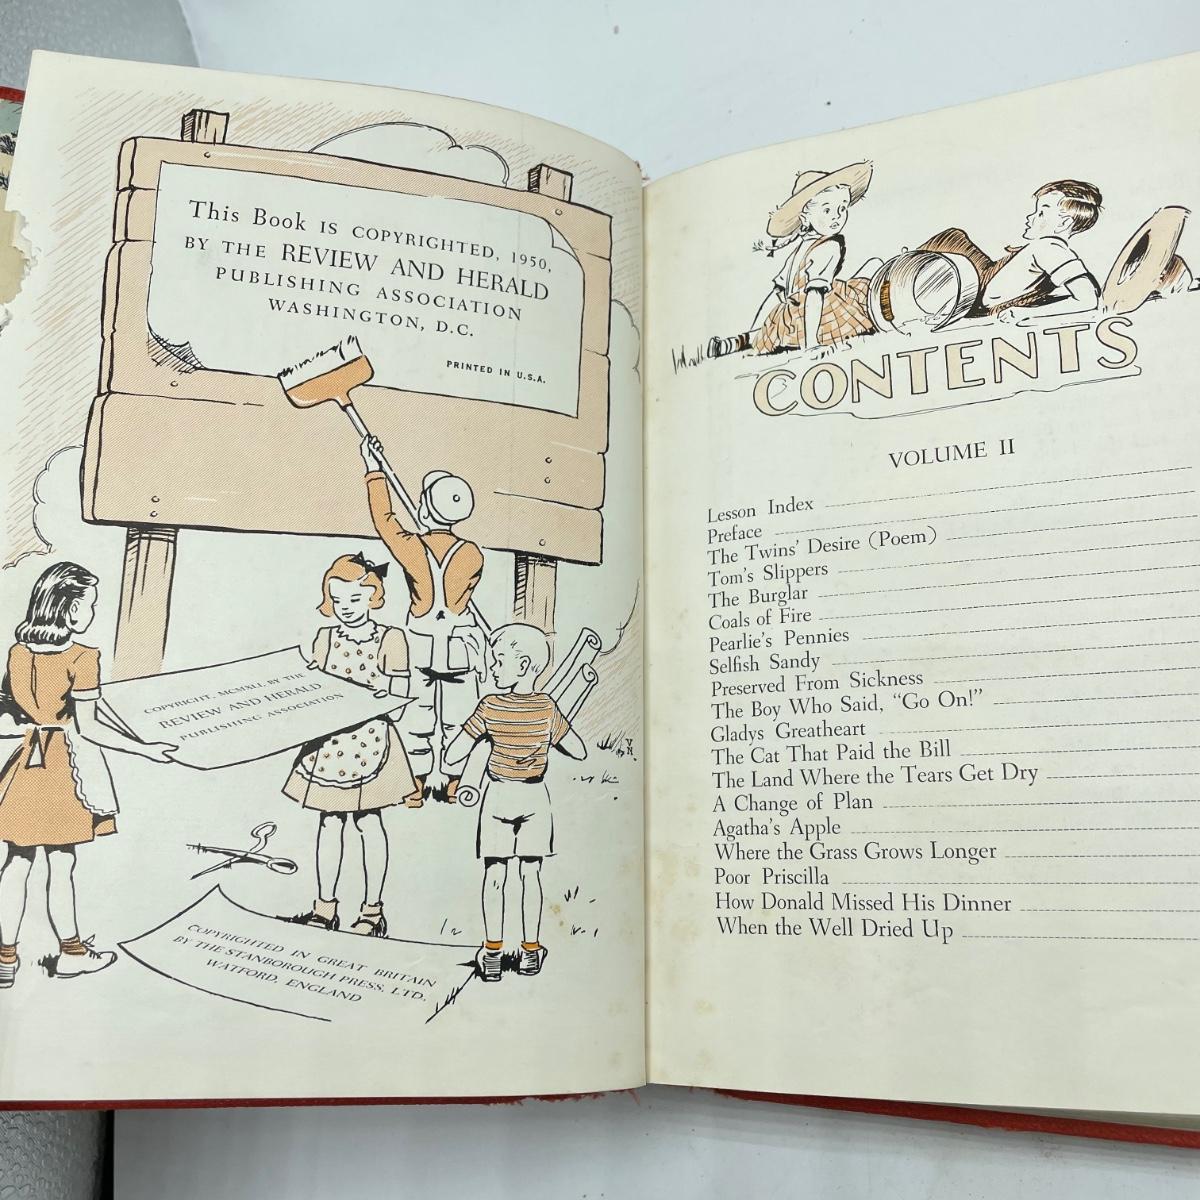 This Book IS COPYRIGHTED, 1950,
BY THE REVIEW AND HERALD
PUBLISHING ASSOCIATION
WASHINGTON, D.C.
PRINTED IN U.S.A.
COPYRIGHT, MCMXLI, BY THE
REVIEW AND HERALD
PUBLISHING ASSOCIATION
COPYRIGHTED IN GREAT BRITAIN
BY THE STANBOROUGH PRESS, LTD.
WATFORD, ENGLAND
CONTENTS
VOLUME II
Lesson Index
Preface
The Twins' Desire (Poem)
Tom's Slippers
The Burglar
Coals of Fire
Pearlie's Pennies
Selfish Sandy
Preserved From Sickness
The Boy Who Said, "Go On!"
Gladys Greatheart
The Cat That Paid the Bill
The Land Where the Tears Get Dry
A Change of Plan
Agatha's Apple
Where the Grass Grows Longer
Poor Priscilla
How Donald Missed His Dinner
When the Well Dried Up